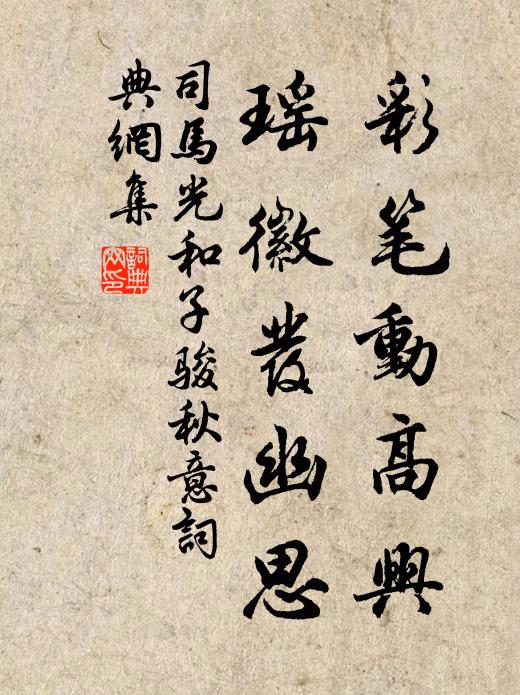 彩笔動高興
瑶徽發幽思
司馬光和子駿秋意詞
典網集
詞典網印